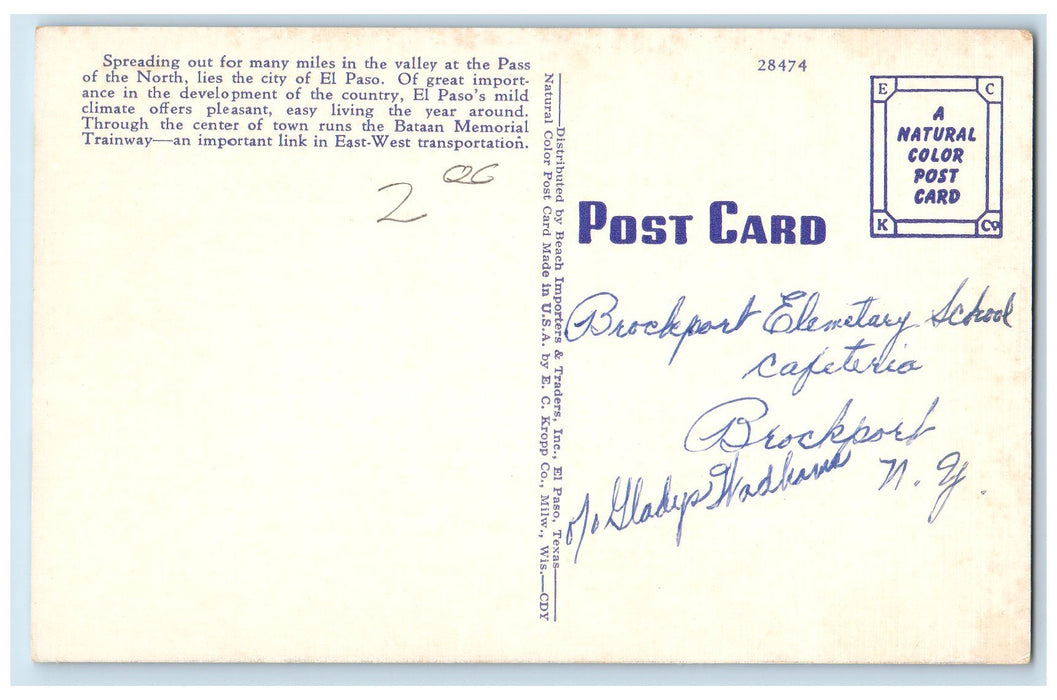 Spreading out for many miles in the valley at the Pass
of the North, lies the city of El Paso. Of great import-
ance in the development of the country, El Paso's mild
climate offers pleasant, easy living the year around.
Through the center of town runs the Bataan Memorial
Trainway—an important link in East-West transportation.
2 00
Distributed by Beach Importers & Traders, Inc., El Paso, Texas
Natural Color Post Card Made in U.S.A. by E. C. Kropp Co., Milw., Wis.—CDY
28474
E C
A
NATURAL
COLOR
POST
CARD
K Co
POST CARD
Brockport Elemetary School
Cafeteria
Brockport
N. Y.
c/o Gladys Wadhams